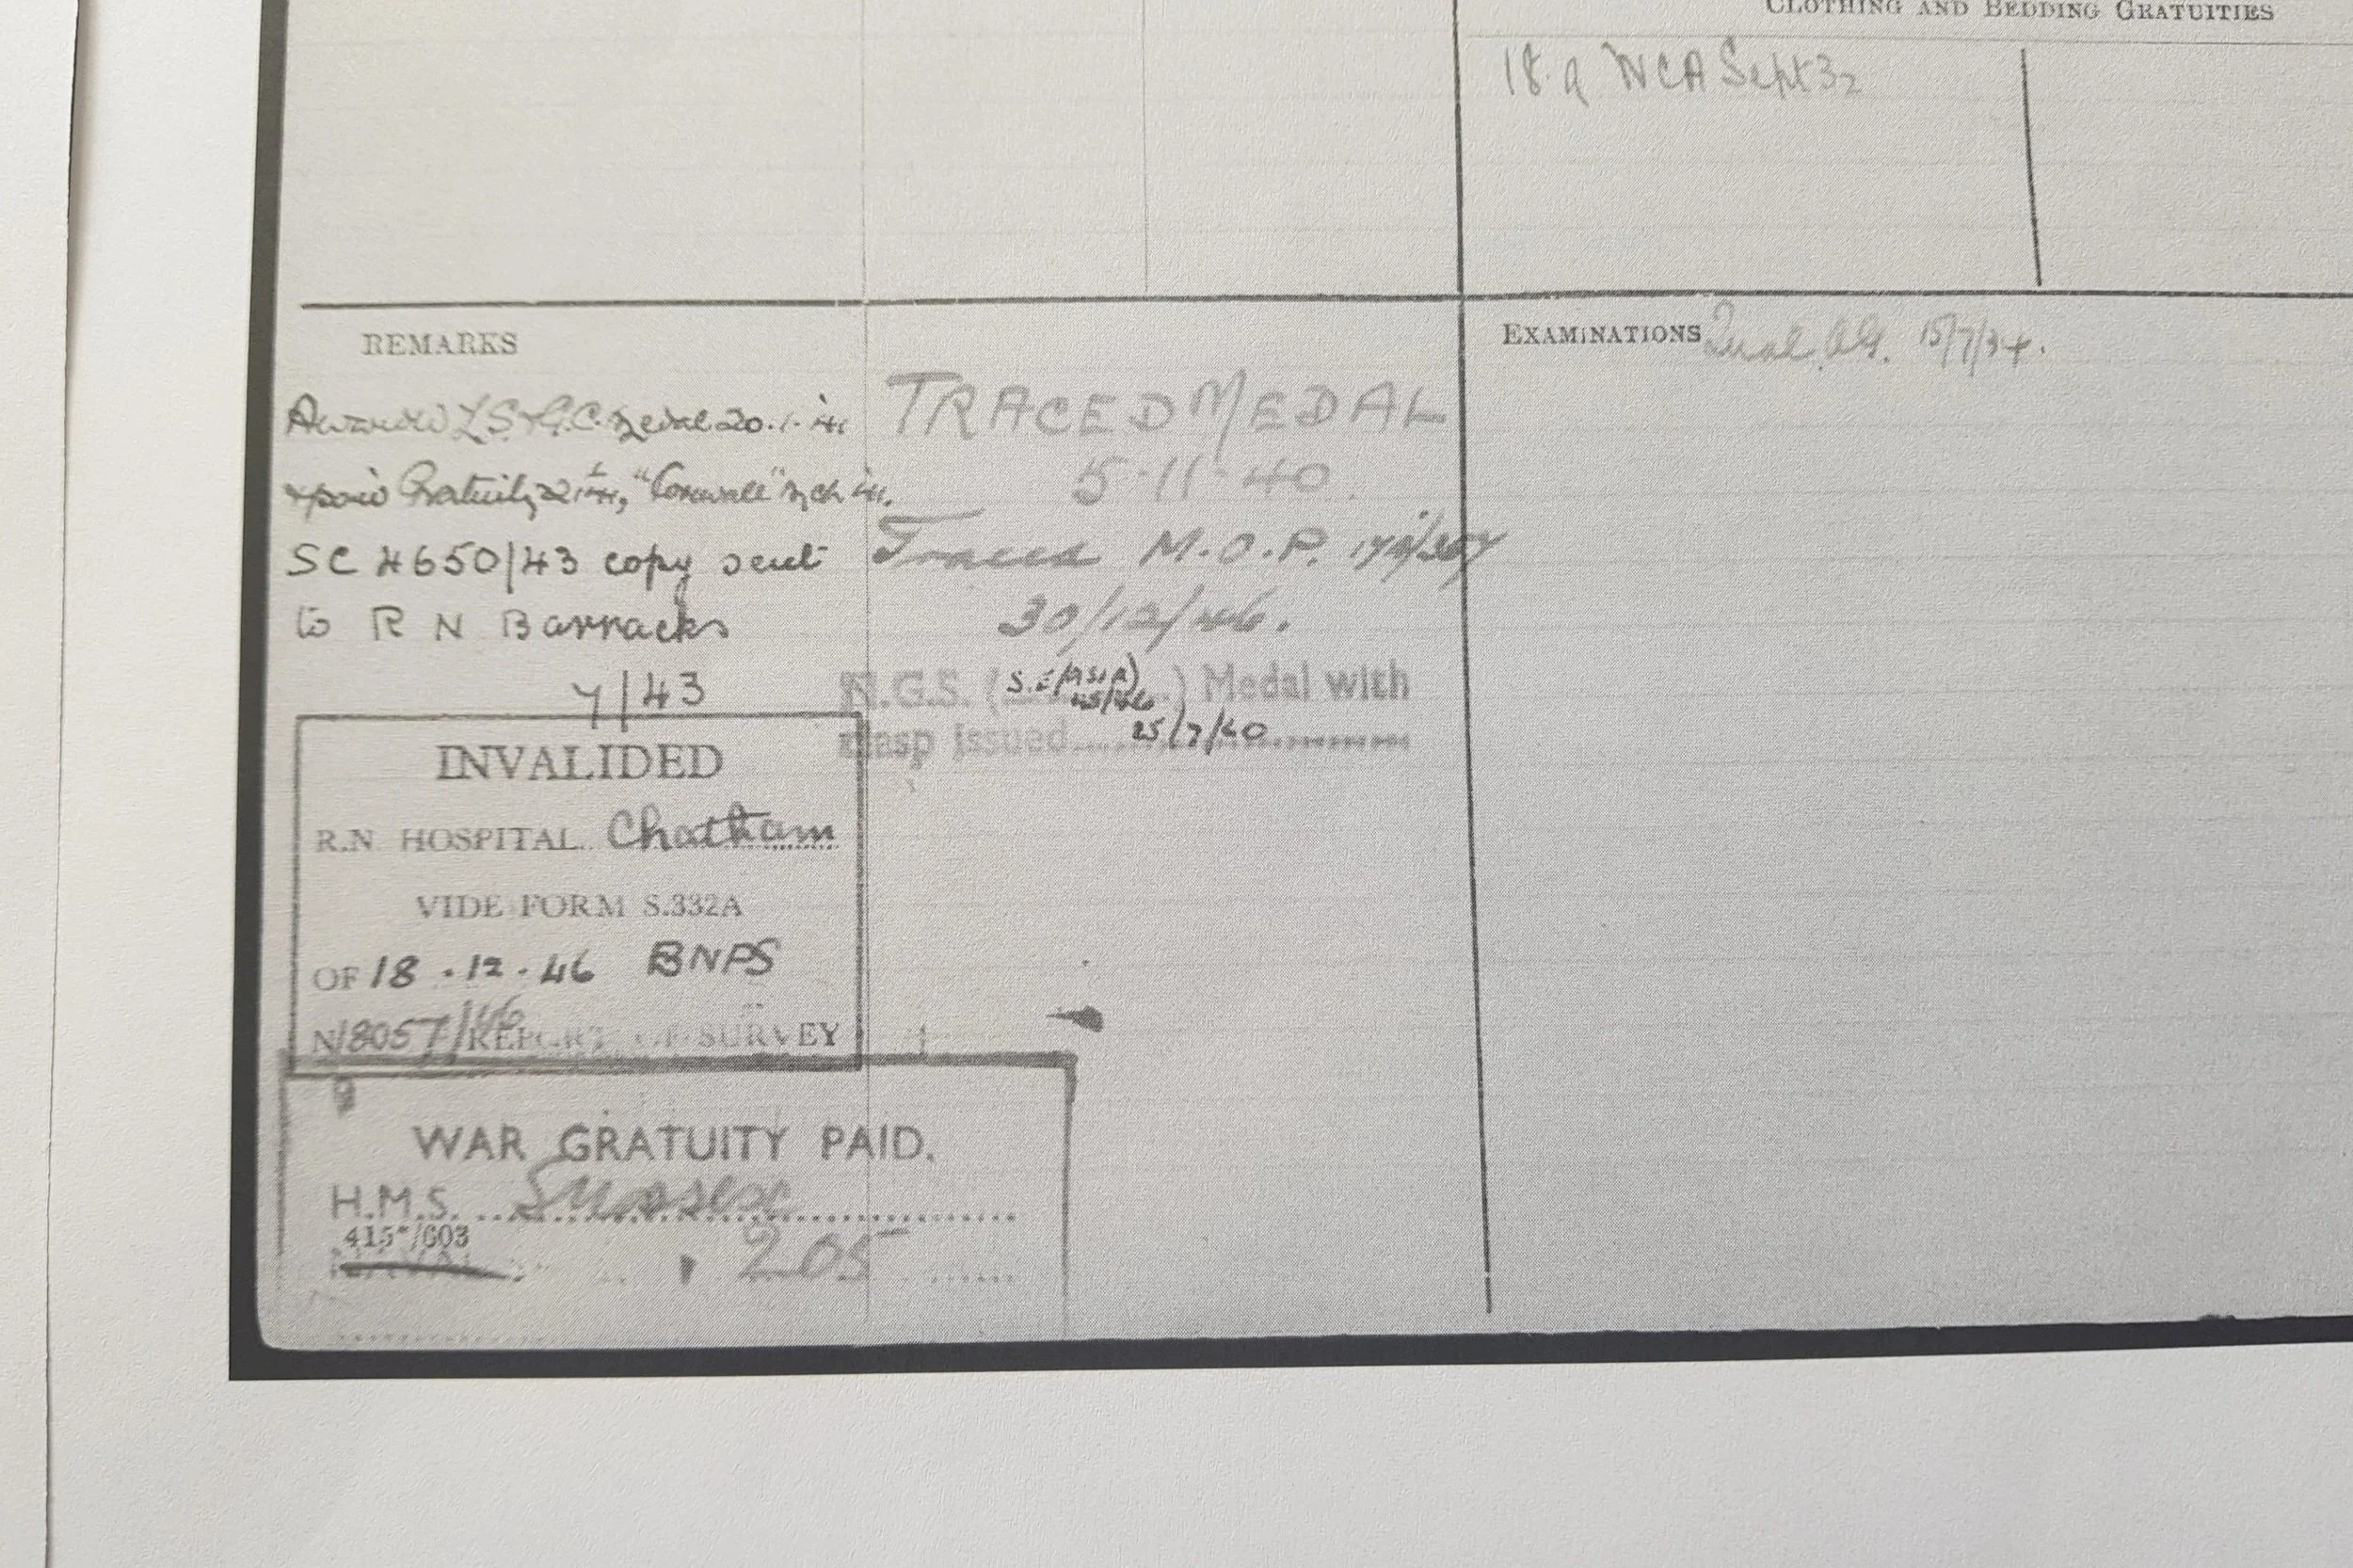 CLOTHING AND BEDDING GRATUITIES
18.9 WCA Sept 32
REMARKS
Awarded L.S. & G.C. Medal 20.1.41
& paid Gratuity "Cornwall" Mch 41.
SC 4650/43 copy sent
to R N Barracks
7/43
TRACED MEDAL
5-11-40.
Traced M.O.P.
30/12/46.
N.G.S. (S.E. ASIA 45/46) Medal with
clasp issued 25/7/60
EXAMINATIONS Qual. 15/7/34.
INVALIDED
R.N. HOSPITAL Chatham
VIDE FORM S.332A
OF 18.12.46 BNPS
N18057/46 REPORT OF SURVEY
WAR GRATUITY PAID.
H.M.S. Sussex
415*/603
205